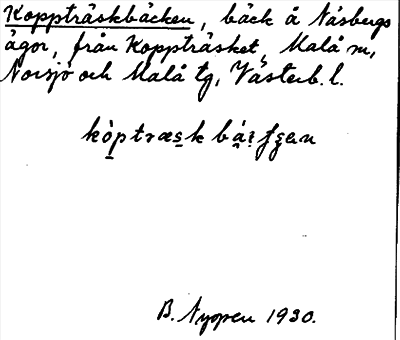 Koppträskbäcken, bäck å Näsbergs
ägor, från Koppträsket, Malå sn,
Norsjö och Malå tg, Västerb. l.
B. Nyopen 1930.